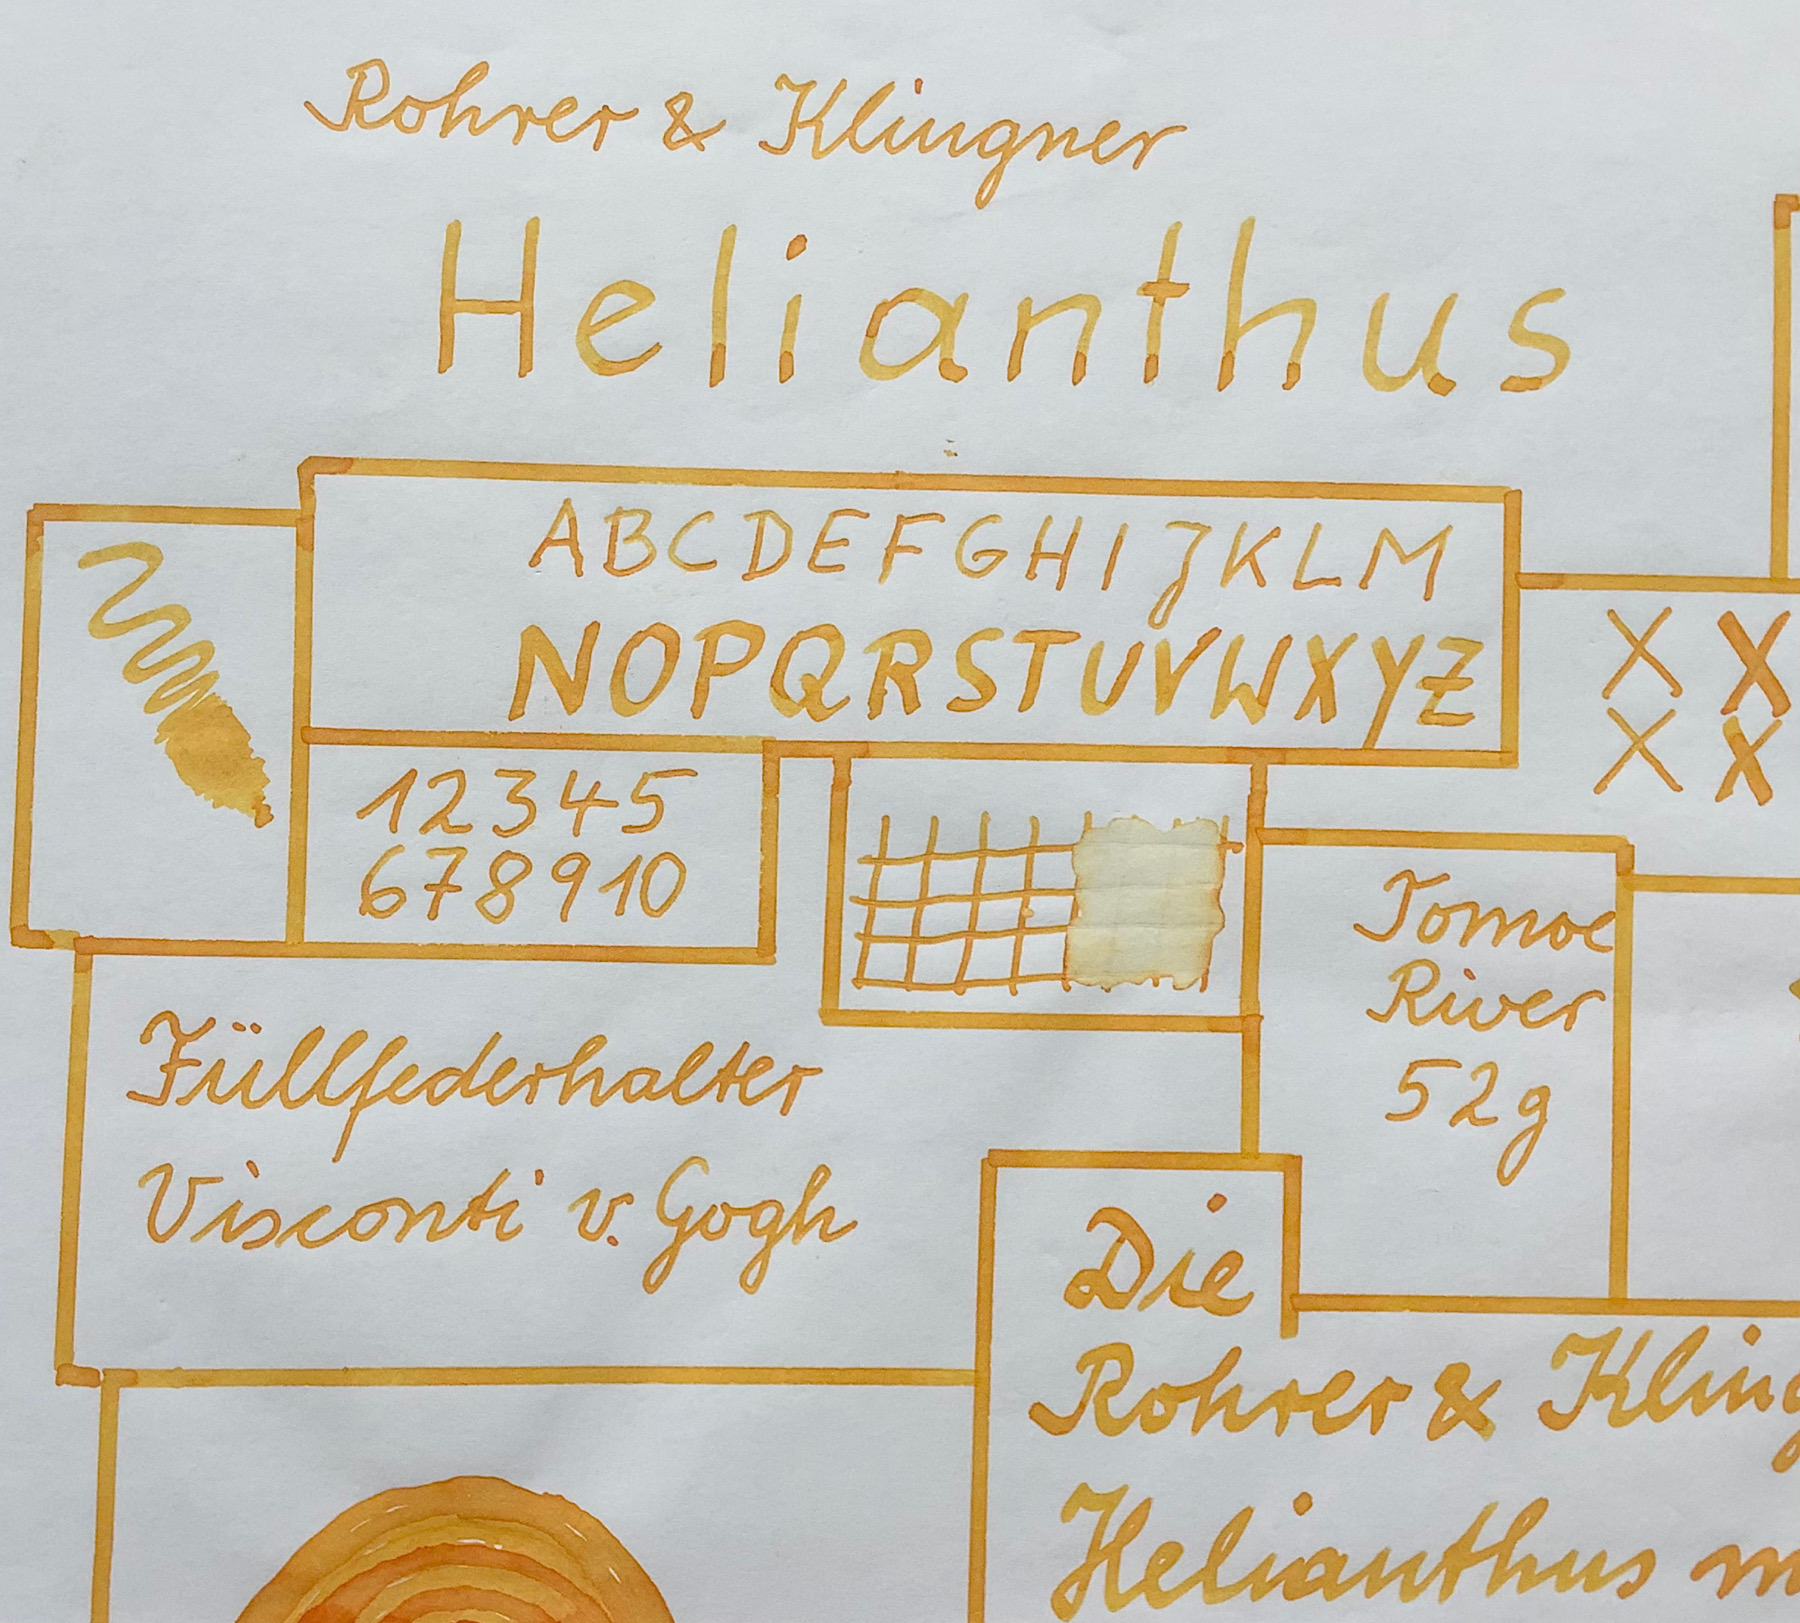 Rohrer & Klingner
Helianthus
ABCDEFGHIJKLM
NOPQRSTUVWXYZ
X X
X X
12345
678910
Tomoe
River
52g
Füllfederhalter
Visconti v. Gogh
Die
Rohrer & Kling
Helianthus m